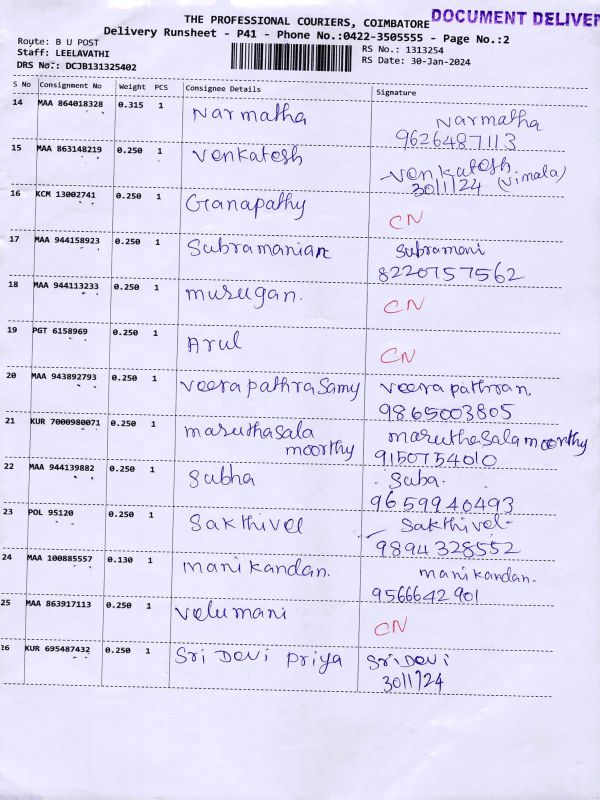 THE PROFESSIONAL COURIERS, COIMBATORE DOCUMENT DELIVER
Delivery Runsheet - P41 - Phone No.:0422-3505555 - Page No.:2
Route: B U POST
Staff: LEELAVATHI
DRS No.: DCJB131325402
RS No.: 1313254
RS Date: 30-Jan-2024
S No Consignment No Weight PCS Consignee Details Signature
14 MAA 864018328 0.315 1 Narmatha Narmatha
9626487113
15 MAA 863148219 0.250 1 Venkatesh Venkatesh
30/1/24 (Vimala)
16 KCM 13002741 0.250 1 Ganapathy CN
17 MAA 944158923 0.250 1 Subramanian Subramani
8220757562
18 MAA 944113233 0.250 1 murugan. CN
19 PGT 6158969 0.250 1 Arul CN
20 MAA 943892793 0.250 1 Veerapathrasamy Veerapathran.
9865003805
21 KUR 7000980071 0.250 1 maruthasala maruthasalamoorthy
moorthy 9150754010
22 MAA 944139882 0.250 1 Subha Suba.
9659940493
23 POL 95120 0.250 1 Sakthivel Sakthivel
9894328552
24 MAA 100885557 0.130 1 manikandan. manikandan.
9566642901
25 MAA 863917113 0.250 1 Velumani CN
26 KUR 695487432 0.250 1 Sri Devi Priya Sri Devi
30/1/24